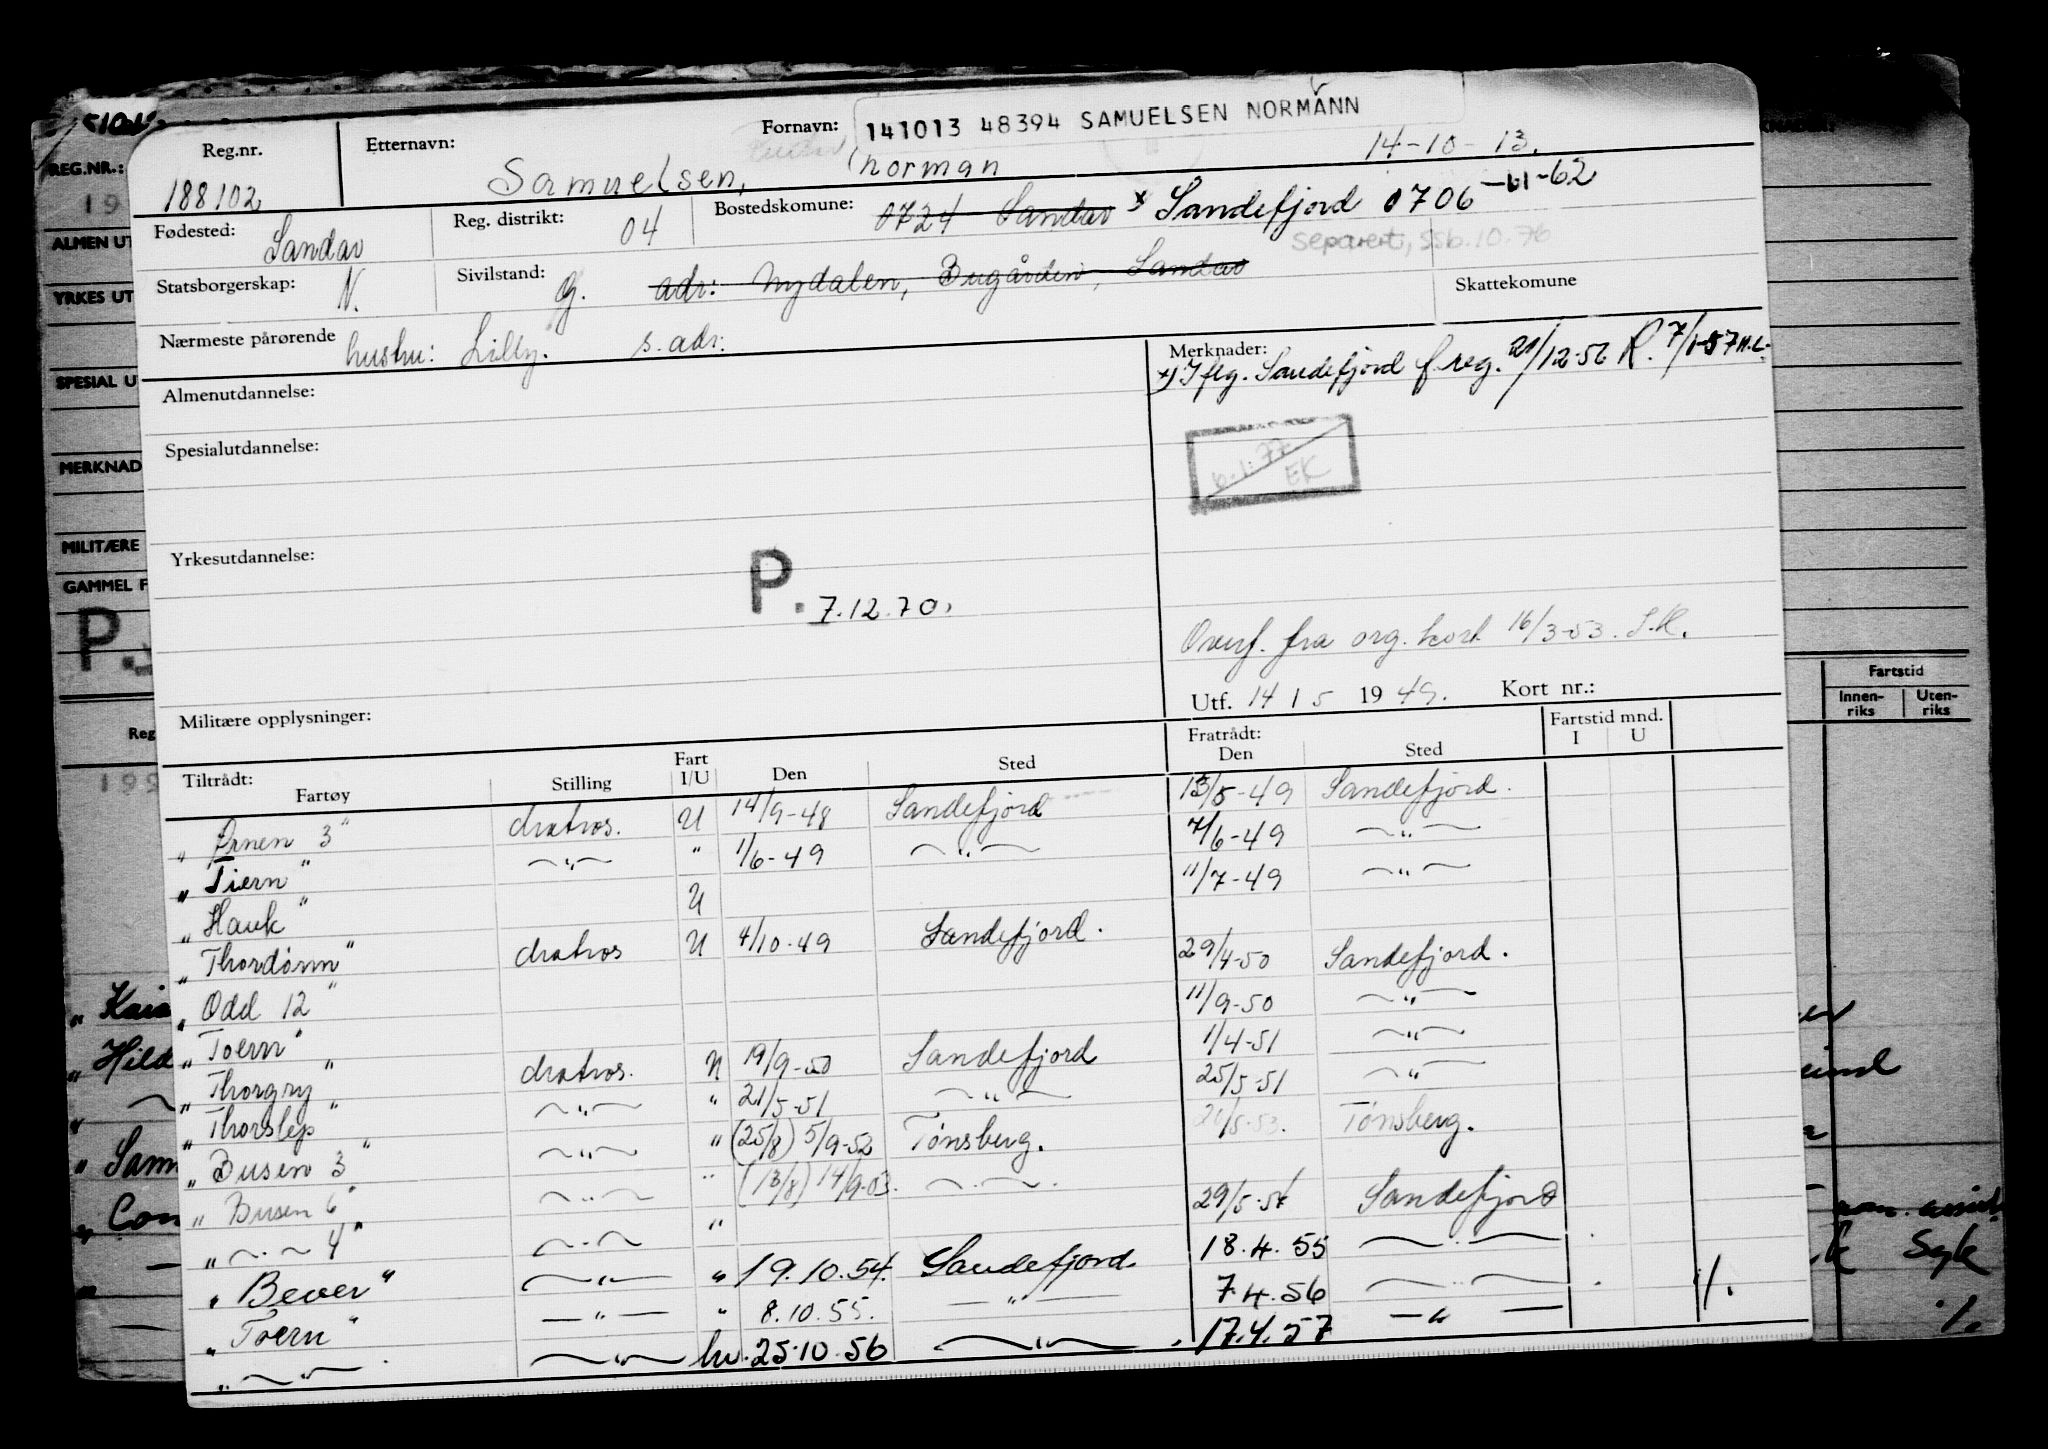 Reg.nr. 188102
Etternavn: Samuelsen,
Fornavn: Norman
141013 48394 SAMUELSEN NORMANN
14-10-13.
Fødested: Sandar
Reg. distrikt: 04
Bostedskomune: 0724 Sandar x Sandefjord 0706 -61-62
separert, SSB.10.76
Statsborgerskap: N.
Sivilstand: g. adr: Nydalen, Bugården, Sandar
Skattekomune
Nærmeste pårørende hustru: Lilly. s. adr.
Merknader:
x) Iflg. Sandefjord f.reg. 21/12-56 R. 7/1-57 H.L.
Almenutdannelse:
Spesialutdannelse:
6.1.77 EK
Yrkesutdannelse:
P. 7.12.70.
Overf. fra org. kort 16/3-53. S.K.
Utf. 14 / 5 1949. Kort nr.:
Militære opplysninger:
Tiltrådt: Fartøy Stilling Fart I/U Den Sted Fratrådt: Den Sted Fartstid mnd. I U
„Ørnen 3" Matros. U 14/9-48 Sandefjord 13/5-49 Sandefjord.
„Tiern" —"— " 1/6-49 —"— 7/6-49 —"—
„Hauk" U 11/7-49 —"—
„Thordönn" Matros U 4/10-49 Sandefjord. 29/4-50 Sandefjord.
„Odd 12" 11/9-50 —"—
„Toern" Matros. U 19/9-50 Sandefjord 1/4-51 —"—
„Thorgry" —"— " 21/5-51 —"— 25/5-51 —"—
„Thorslep" —"— " (25/8) 5/9-52 Tønsberg. Tønsberg.
„Busen 3" —"— " (13/8) 14/9-53. —"—.
„Busen 6" —"— " 29/5-54 Sandefjord
„—"— 4" —"— " 19.10.54. Sandefjord. 18.4.55 —"—
„Bever" —"— " 8.10.55. —"— 7.4.56 —"—
„Toern" —"— hv. 25.10.56 —"— 17.4.57 —"—
„—"—
REG.NR.:
ALMEN UT
YRKES UT
SPESIAL U
MERKNAD
MILITÆRE
GAMMEL F
P.
Reg
Fartstid
Innen-riks Uten-riks
„Hild
Syk